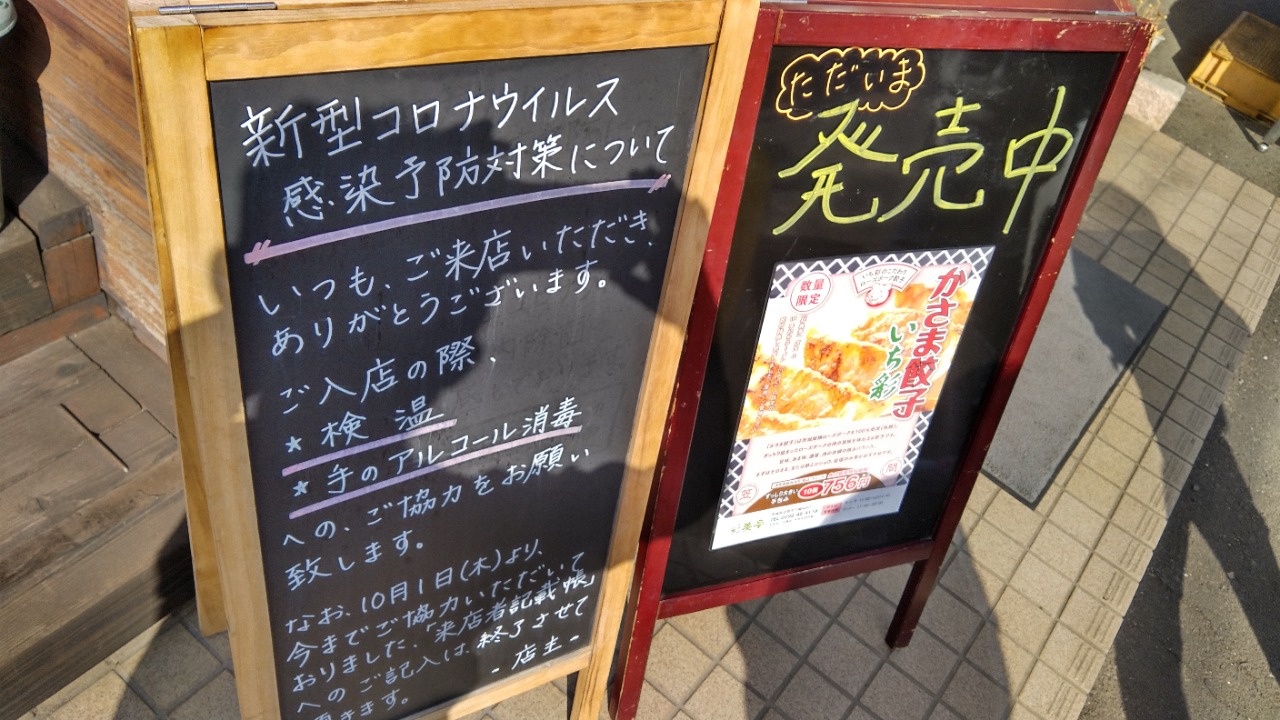 新型コロナウイルス
感染予防対策について
いつも、ご来店いただき、
ありがとうございます。
ご入店の際、
★ 検 温
★ 手のアルコール消毒
への、ご協力をお願い
致します。
なお、10月1日(木)より、
今までご協力いただいて
おりました、「来店者記載帳」
へのご記入は、終了させて
頂きます。
- 店主 -
ただいま
発売中
数量
限定
かさま餃子
いち彩
10個
756円
笠
間